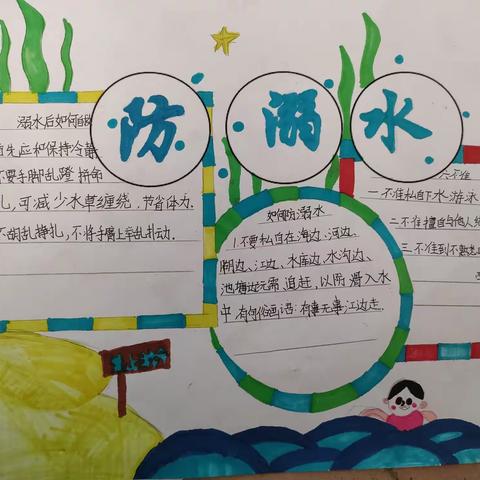 防 溺 水
溺水后如何自救
首先应和保持冷静
不要手脚乱蹬拼命
扎,可减少水草缠绕,节省体力.
不胡乱挣扎,不将手臂上举乱扑动.
如何防溺水
1.不要私自在海边、河边、
湖边、江边、水库边、水沟边、
池塘边玩耍、追赶,以防滑入水
中.有句俗话语:有事无事江边走.
六不准
一不准私自下水游泳
二.不准擅自与他人结
三.不准到不熟悉